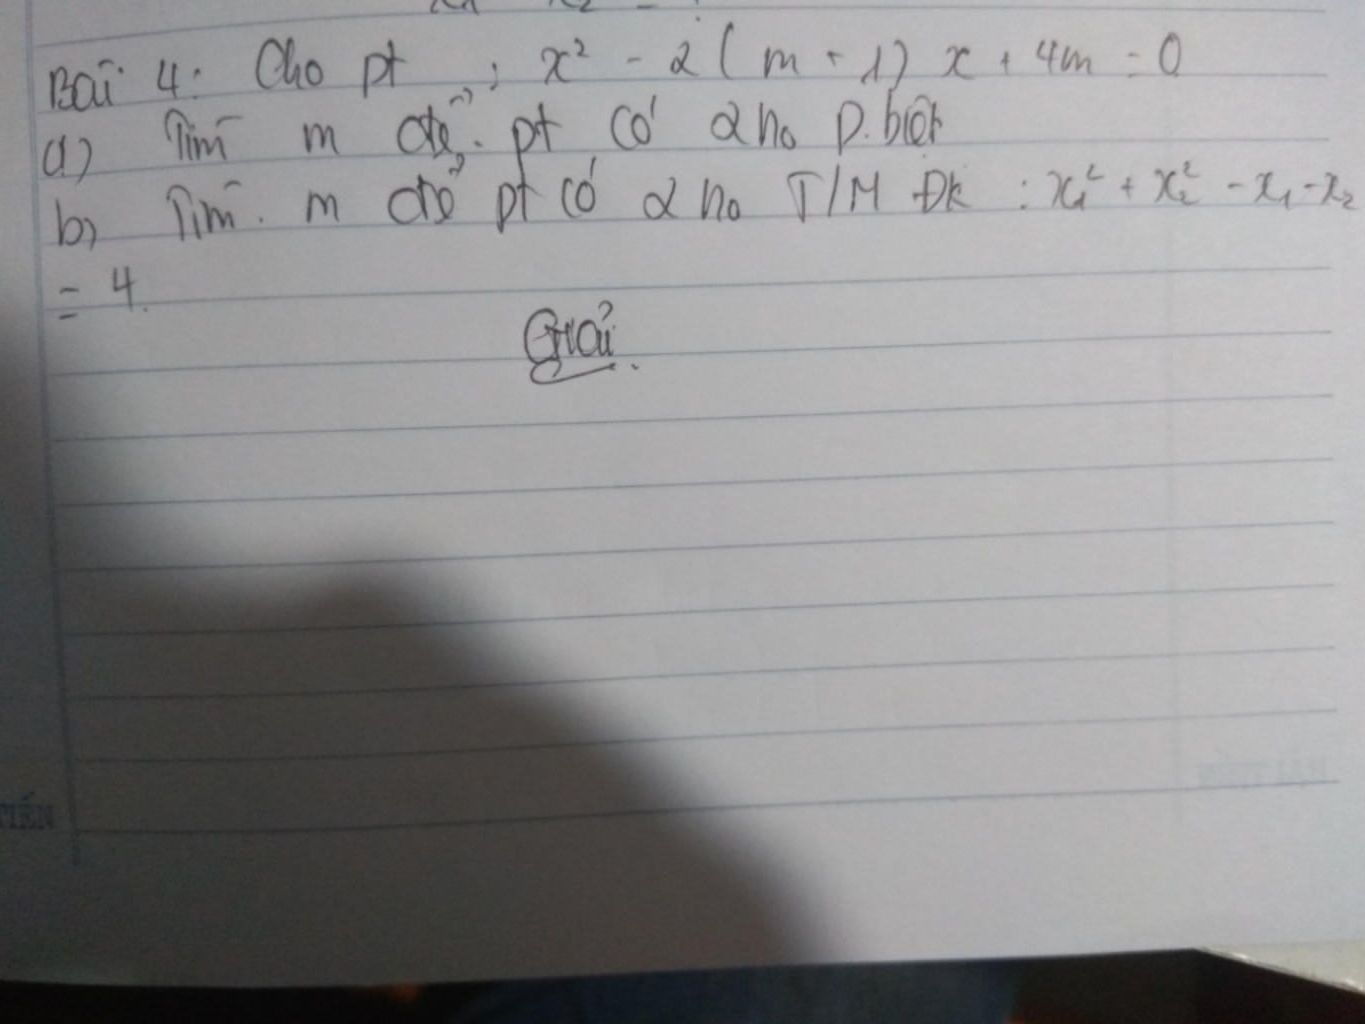 Bài 4: Cho pt : x² - 2(m + 1) x + 4m = 0
a) Tìm m để pt có 2 no p.biệt
b) Tìm m để pt có 2 no T/M ĐK : x₁² + x₂² - x₁ - x₂
= 4.
Giải